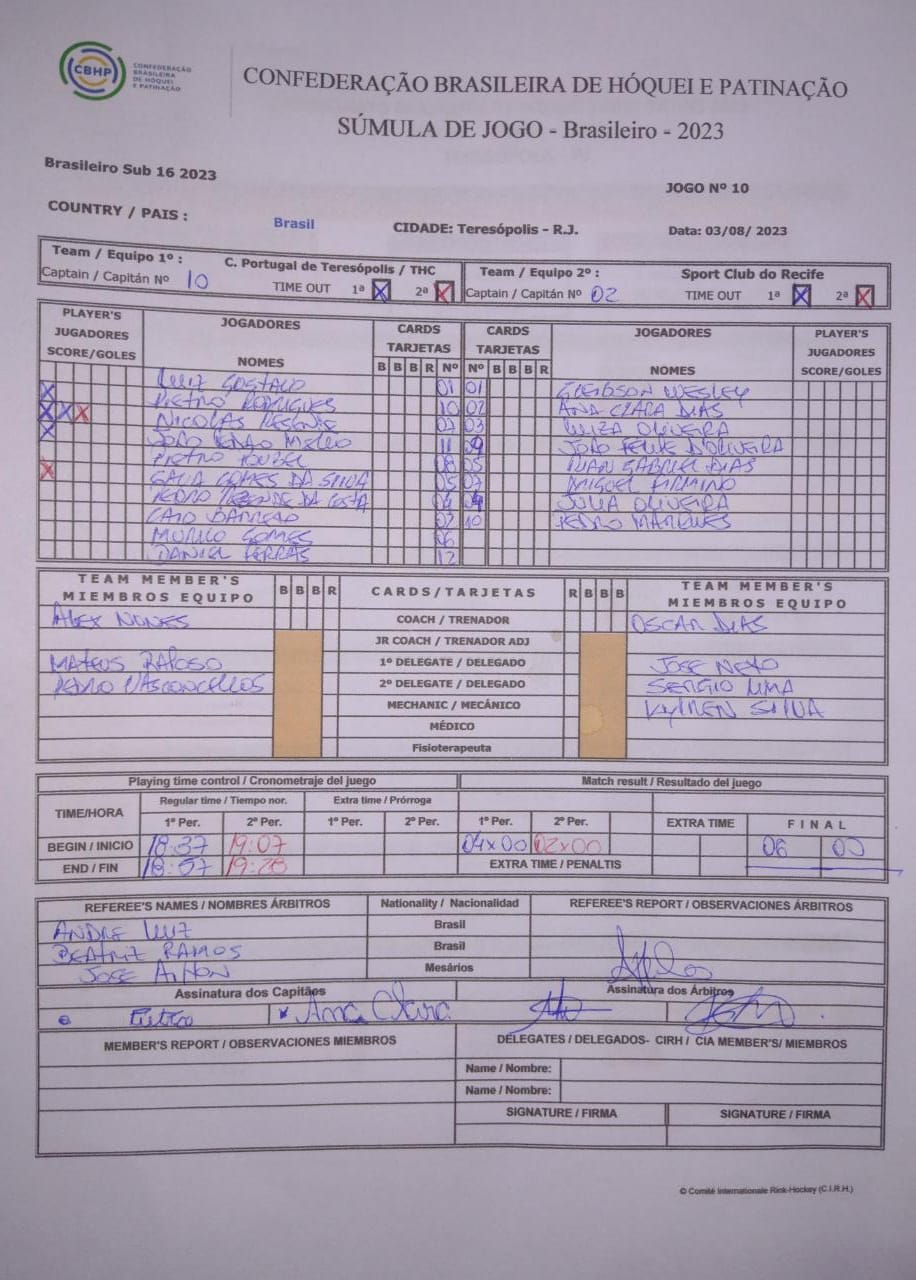 CBHP CONFEDERAÇÃO
BRASILEIRA
DE HÓQUEI
E PATINAÇÃO
CONFEDERAÇÃO BRASILEIRA DE HÓQUEI E PATINAÇÃO
SÚMULA DE JOGO - Brasileiro - 2023
Brasileiro Sub 16 2023
JOGO Nº 10
COUNTRY / PAIS : Brasil CIDADE: Teresópolis - R.J. Data: 03/08/ 2023
Team / Equipo 1º : C. Portugal de Teresópolis / THC Team / Equipo 2º : Sport Club do Recife
Captain / Capitán Nº 10 TIME OUT 1ª X 2ª X Captain / Capitán Nº 02 TIME OUT 1ª X 2ª X
PLAYER'S JUGADORES SCORE/GOLES JOGADORES NOMES CARDS TARJETAS CARDS TARJETAS JOGADORES NOMES PLAYER'S JUGADORES SCORE/GOLES
B B B R Nº Nº B B B R
LUIZ GUSTAVO 01 01 GLEIBSON WESLEY
X PIETRO RODRIGUES 10 02 ANA CLARA DIAS
X X X NICOLAS 07 03 LUIZA OLIVEIRA
X JOÃO PEDRO 11 JOÃO FELIPE D'OLIVEIRA
PIETRO 08 05 LUAN GABRIEL DIAS
X GOMES DA SILVA 05 07 MIGUEL FIRMINO
PEDRO REZENDE DA COSTA JULIA OLIVEIRA
CAIO BARRETO 10 PEDRO MARQUES
MURILO GOMES 06
DANIEL FERRAS 12
TEAM MEMBER'S MIEMBROS EQUIPO B B B R CARDS/TARJETAS R B B B TEAM MEMBER'S MIEMBROS EQUIPO
ALEX NUNES COACH / TRENADOR OSCAR DIAS
JR COACH / TRENADOR ADJ
MATEUS RAPOSO 1º DELEGATE / DELEGADO JOSE NETO
PEDRO VASCONCELLOS 2º DELEGATE / DELEGADO SERGIO LIMA
MECHANIC / MECÁNICO SILVA
MÉDICO
Fisioterapeuta
Playing time control / Cronometraje del juego Match result / Resultado del juego
TIME/HORA Regular time / Tiempo nor. Extra time / Prórroga
1º Per. 2º Per. 1º Per. 2º Per. 1º Per. 2º Per. EXTRA TIME FINAL
BEGIN / INICIO 18:37 19:07 04x00 02x00 06 00
END / FIN 18:57 19:28 EXTRA TIME / PENALTIS
REFEREE'S NAMES / NOMBRES ÁRBITROS Nationality / Nacionalidad REFEREE'S REPORT / OBSERVACIONES ÁRBITROS
ANDRE LUIZ Brasil
BEATRIZ RAMOS Brasil
JOSE AILTON Mesários
Assinatura dos Capitães Assinatura dos Árbitros
Ana Clara
MEMBER'S REPORT / OBSERVACIONES MIEMBROS DELEGATES / DELEGADOS- CIRH / CIA MEMBER'S/ MIEMBROS
Name / Nombre:
Name / Nombre:
SIGNATURE / FIRMA SIGNATURE / FIRMA
© Comité Internationale Rink-Hockey (C.I.R.H.)